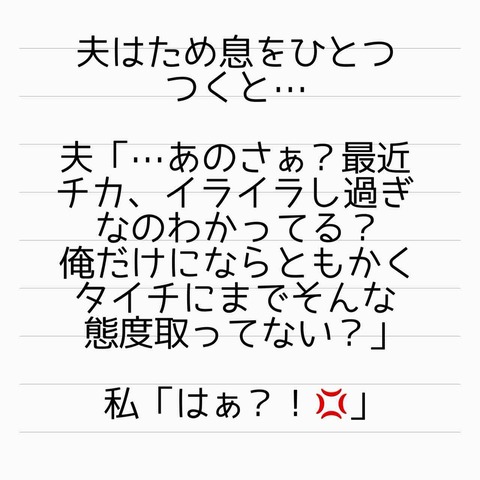 夫はため息をひとつ
つくと…
夫「…あのさぁ？最近
チカ、イライラし過ぎ
なのわかってる？
俺だけにならともかく
タイチにまでそんな
態度取ってない？」
私「はぁ？！💢」